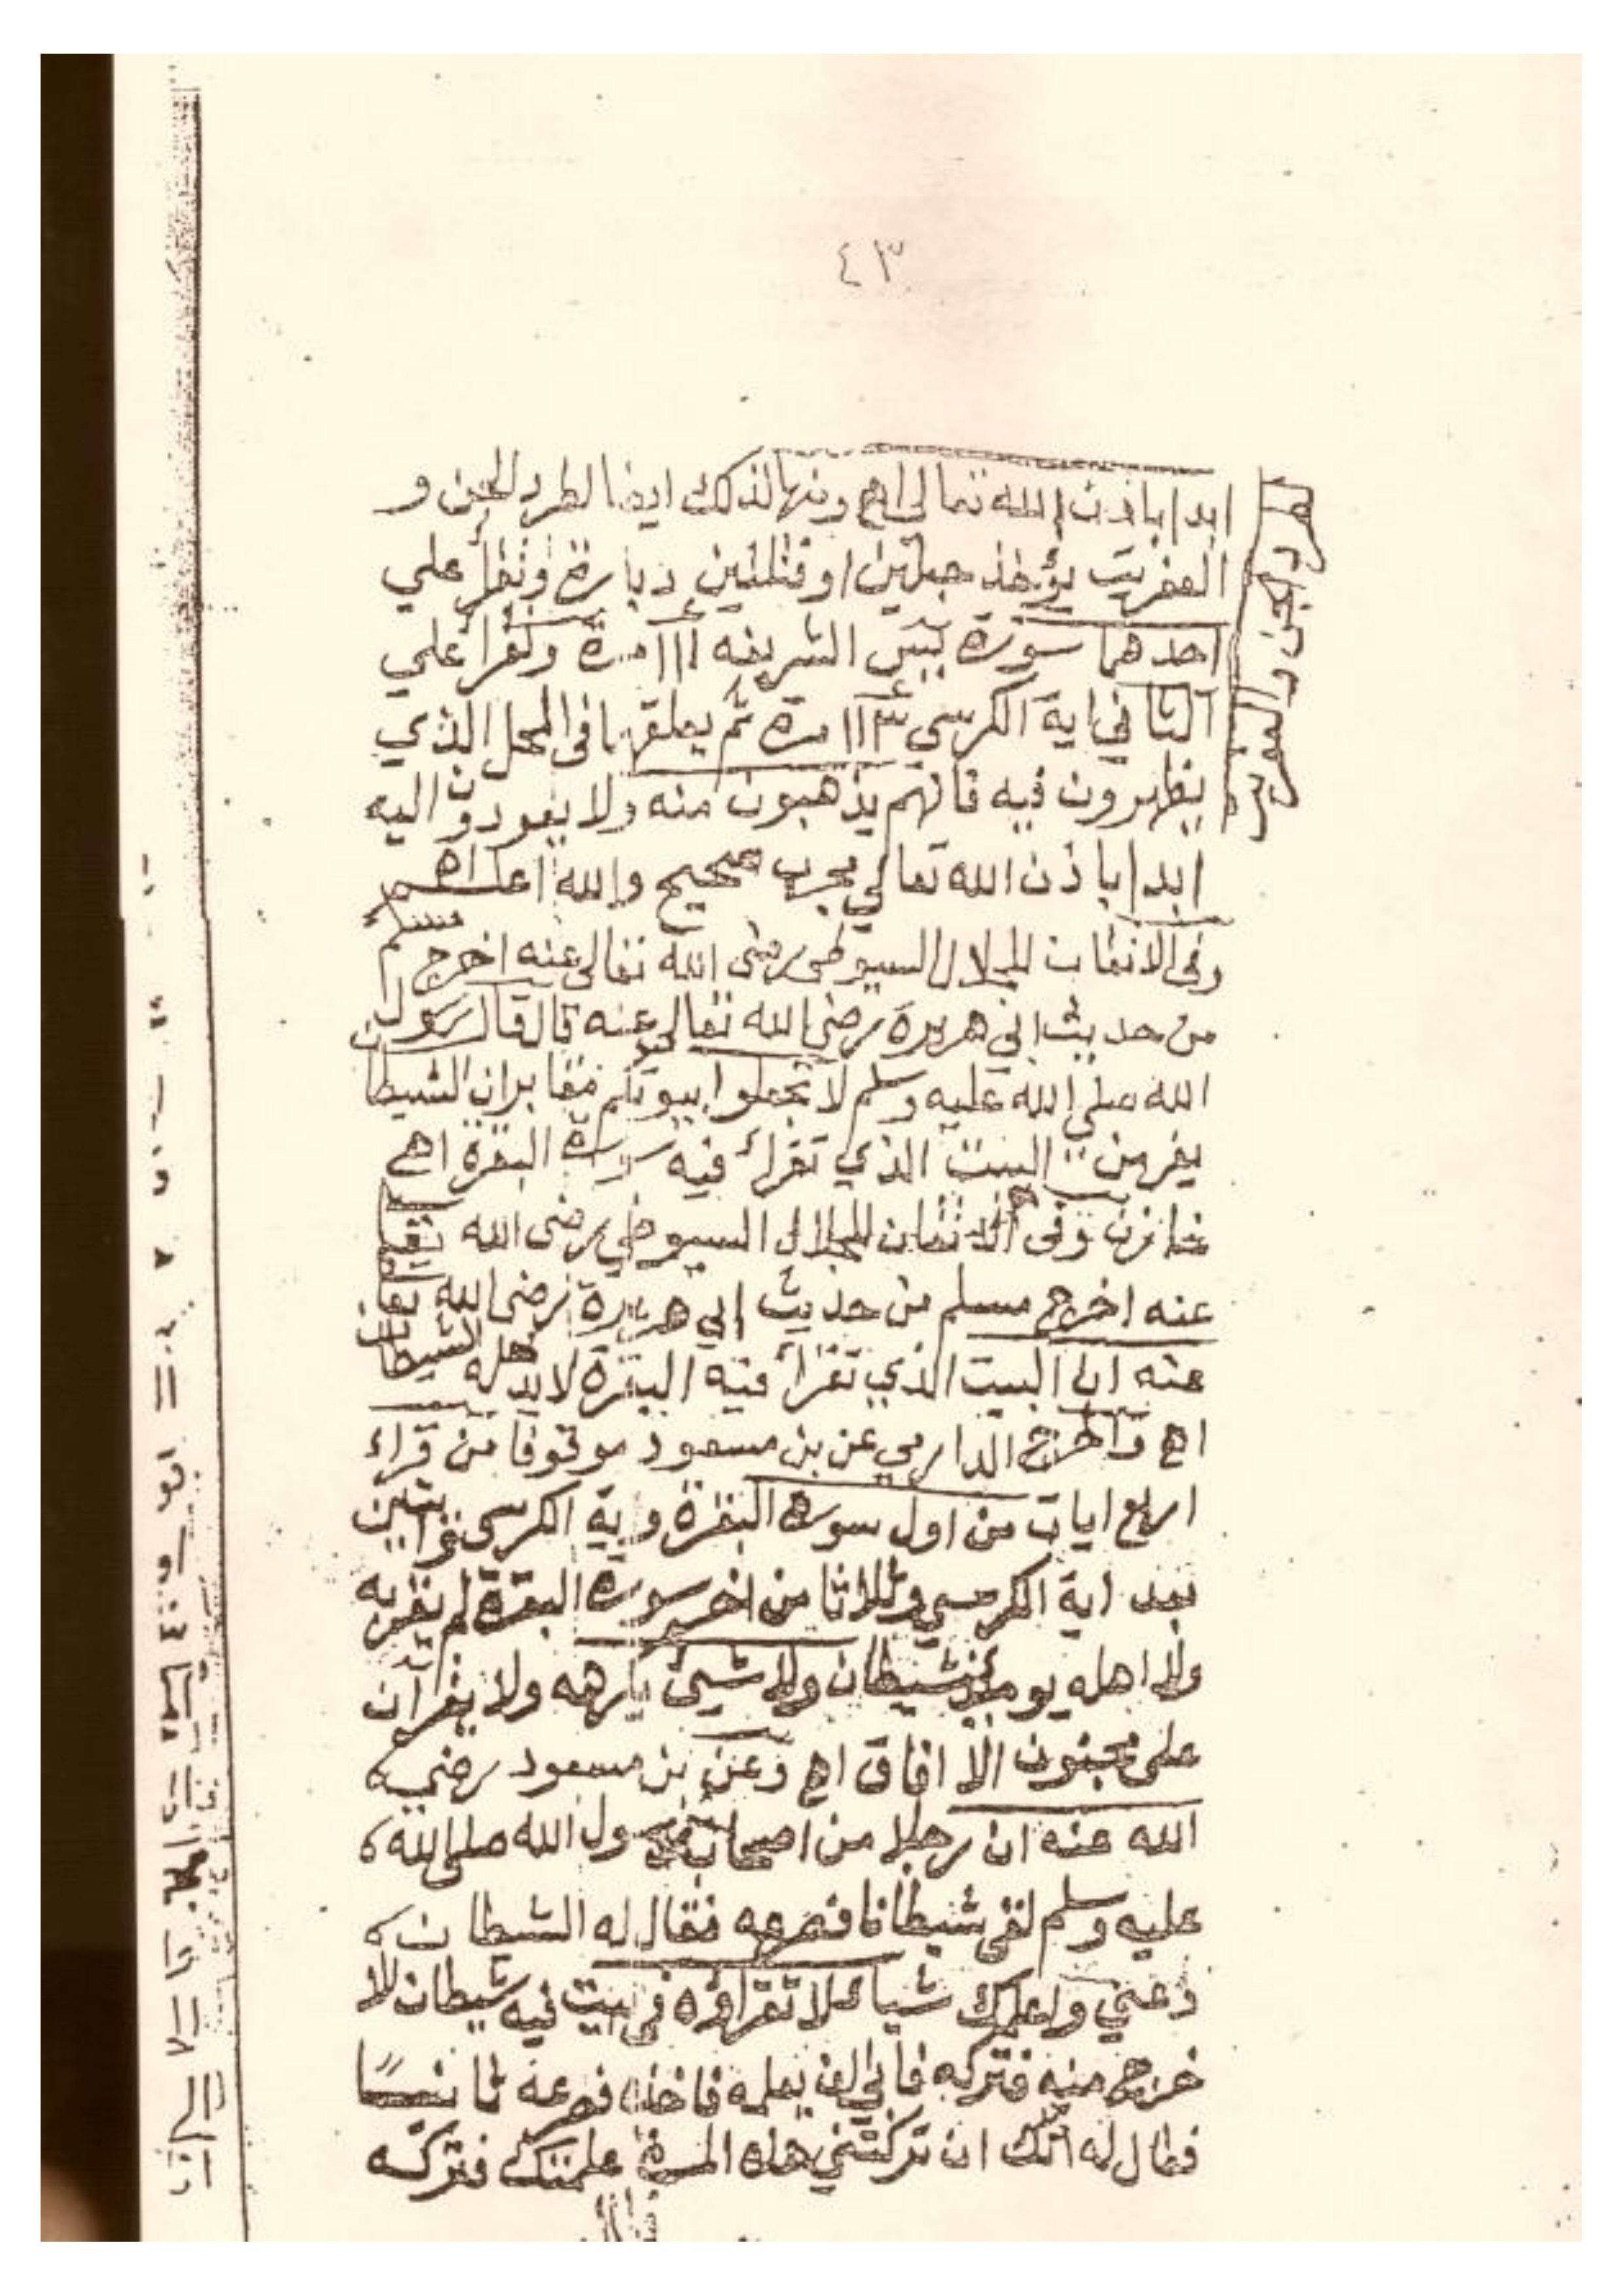 ٤٣
طرد الجن والعفريت
ابدا باذن الله تعالى اهـ ومنها لذلك ايضا لطرد الجن و
العفريت يؤخذ حبلين او فتلتين دبارة وتقرأ علي
احدهما سورة يٓس الشريفه ااا مرة وتقرأ علي
الثاني اية الكرسي ٣١١ مرة ثم يعلقها في المحل الذي
يظهرون فيه فانهم يذهبون منه ولا يعودون اليه
ابدا باذن الله تعالي مجرب صحيح والله اعلم اهـ
وفى الاتقان للجلال السيوطى رضى الله تعالى عنه اخرج مسلم
من حديث ابي هريرة رضى الله تعالى عنه قال قال رسول
الله صلى الله عليه وسلم لا تجعلوا بيوتكم مقابر ان الشيطان
يفر من البيت الذي تقرأ فيه سورة البقرة اهـ
خازن وفى الاتقان للجلال السيوطي رضى الله تعا
عنه اخرج مسلم من حديث ابي هريرة رضى الله تعا
عنه ان البيت الذي تقرأ فيه البقرة لا يدخله الشيطان
اهـ واخرج الدارمي عن بن مسعود موقوفا من قراء
اربع ايات من اول سورة البقرة واية الكرسى وايتين
بعد اية الكرسي وثلاثا من اخر سورة البقرة لم يقربه
ولا اهله يومئذ شيطان ولا شيئ يكرهه ولا يقرأن
على مجنون الا افاق اهـ وعن بن مسعود رضي
الله عنه ان رجلا من اصحاب رسول الله صلى الله
عليه وسلم لقى شيطانا فصرعه فقال له الشيطان
دعني واعلمك شيا لا تقرأه في بيت فيه شيطان الا
خرج منه فتركه فابي ان يعلمه فاخذه فصرعه ثانيا
فقال له انك ان تركتني هذه المرة علمتك فتركه
فقال